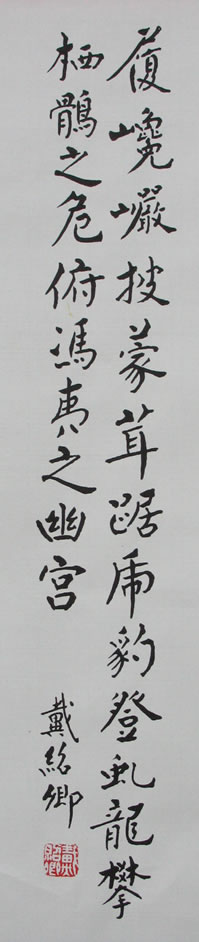 履巉巖披蒙茸踞虎豹登虬龍攀
栖鶻之危俯馮夷之幽宫
戴紹卿